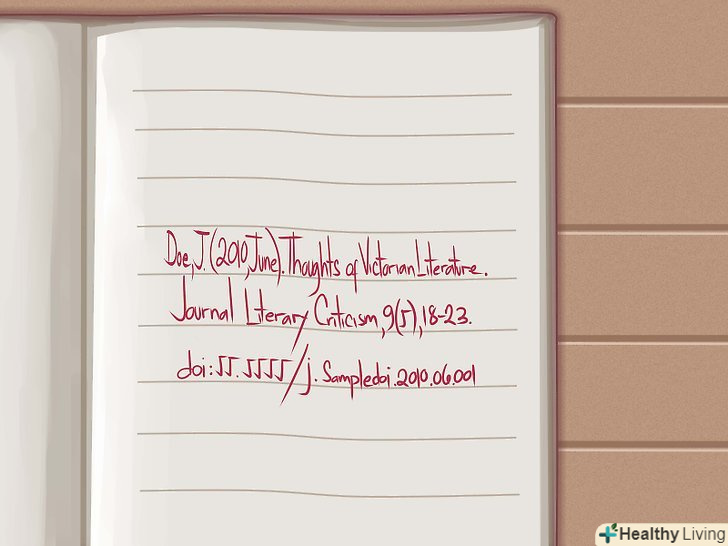 Doe, J. (2010, June). Thoughts of Victorian Literature.
Journal Literary Criticism, 9(5), 18-23.
doi:55.5555/j.Sampledoi.2010.06.001
Healthy Living